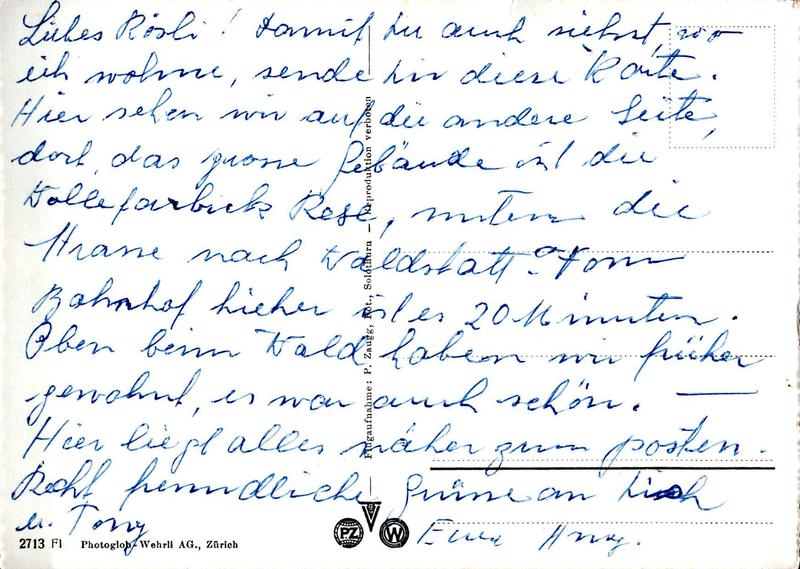 Liebes Rösli! Damit du auch siehst, wo
ich wohne, sende dir diese Karte.
Hier sehen wir auf die andere Seite,
dort das grosse Gebäude ist die
Rese, unten die
Strasse nach Waldstatt. Vom
Bahnhof hieher ist es 20 Minuten.
Oben beim Wald haben wir früher
gewohnt, es war auch schön. —
Hier liegt alles näher zum posten.
Recht freundliche Grüsse an Dich
u. Tony
Eure
Flugaufnahme: P. Zaugg, Fot., Solothurn — Reproduktion verboten
PZ
W
2713 Fl Photoglob-Wehrli AG., Zürich